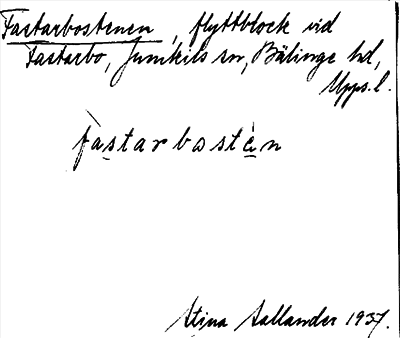 Fastarbostenen, flyttblock vid
Fastarbo, Jumkils sn, Bälinge hd,
Upps. l.
fàstarbostèn
Stina Sallander 1937.